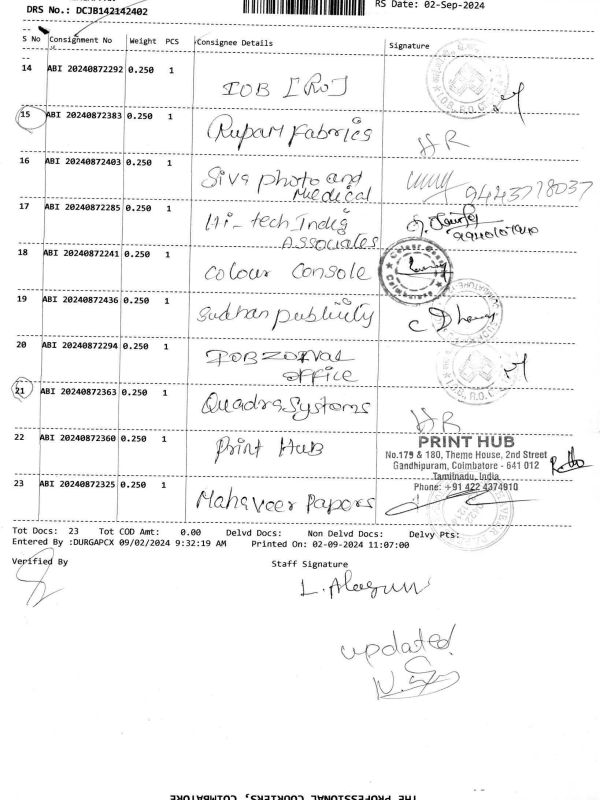 DRS No.: DCJB142142402 RS Date: 02-Sep-2024
S No Consignment No Weight PCS Consignee Details Signature
14 ABI 20240872292 0.250 1 IOB [RO]
15 ABI 20240872383 0.250 1 Rupam Fabrics HR
16 ABI 20240872403 0.250 1 Siva photo and
Medical 9443778037
17 ABI 20240872285 0.250 1 Hi-tech India
Associates
18 ABI 20240872241 0.250 1 Colour Console
19 ABI 20240872436 0.250 1 Sudhan publicity
20 ABI 20240872294 0.250 1 IOB ZONAL
office
21 ABI 20240872363 0.250 1 Quadra Systems HR
22 ABI 20240872360 0.250 1 Print Hub
PRINT HUB
No.179 & 180, Theme House, 2nd Street
Gandhipuram, Coimbatore - 641 012
Tamilnadu, India
Phone: +91 422 4374910
23 ABI 20240872325 0.250 1 Mahaveer Papers
Tot Docs: 23 Tot COD Amt: 0.00 Delvd Docs: Non Delvd Docs: Delvy Pts:
Entered By :DURGAPCX 09/02/2024 9:32:19 AM Printed On: 02-09-2024 11:07:00
Verified By Staff Signature
updated
THE PROFESSIONAL COURIERS, COIMBATORE